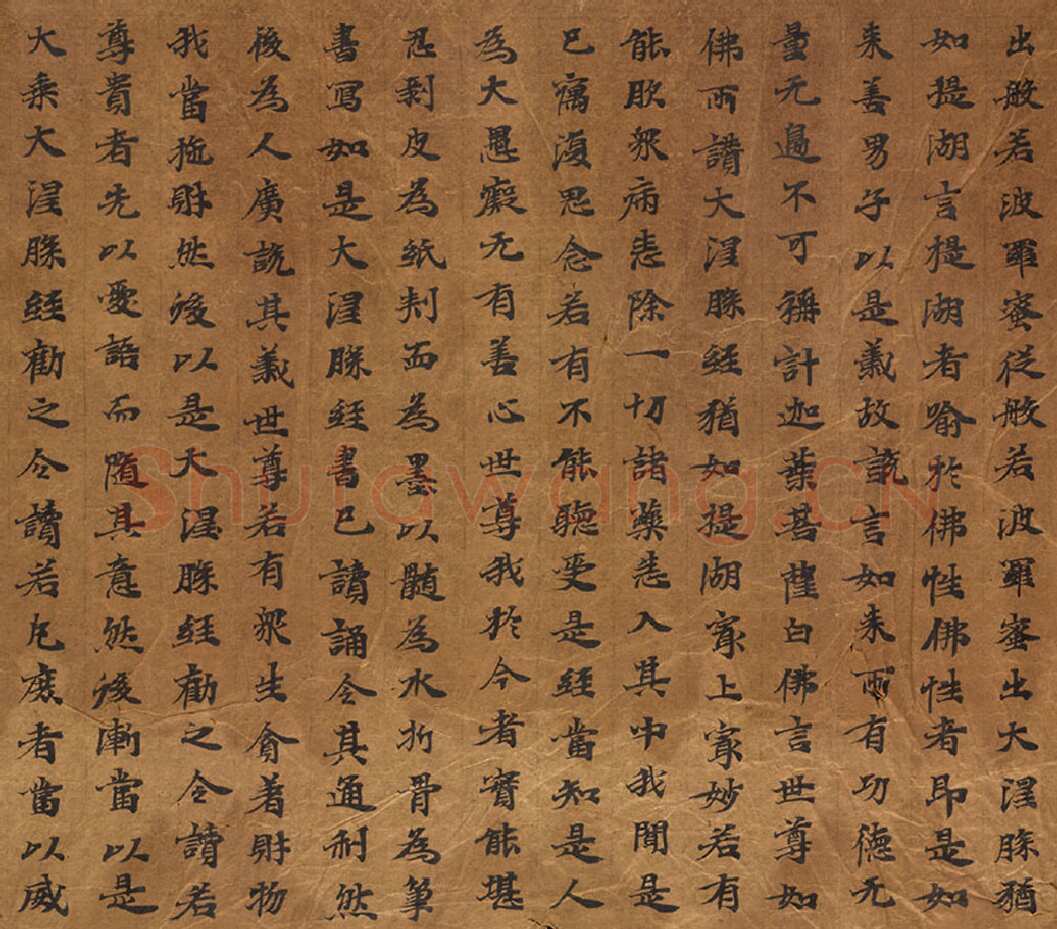 出般若波羅蜜從般若波羅蜜出大涅槃猶
如提湖言提湖者喻於佛性佛性者即是如
来善男子以是義故說言如来所有功德无
量无邊不可稱計迦葉菩薩白佛言世尊如
佛所讃大涅槃經猶如提湖㝡上㝡妙若有
能飲衆病悉除一切諸藥悉入其中我聞是
已竊復思念若有不能聽受是經當知是人
為大愚癡无有善心世尊我於今者實能堪
忍剥皮為紙刺血為墨以髓為水折骨為筆
書寫如是大涅槃經書已讀誦令其通利然
後為人廣說其義世尊若有衆生貪著財物
我當施財然後以是大涅槃經勸之令讀若
尊貴者先以愛語而隨其意然後漸當以是
大乗大涅槃經勸之令讀若凡庶者當以威
Shufawang.CN